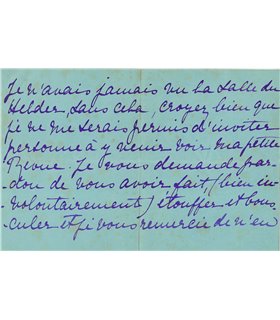 Je n'avais jamais vu la salle du
Helder, sans cela, croyez bien que
je ne me serais permis d'inviter
personne à y venir voir ma petite
Revue. Je vous demande par-
-don de vous avoir fait, (bien in-
-volontairement) étouffer et bous
culer et je vous remercie de n'en